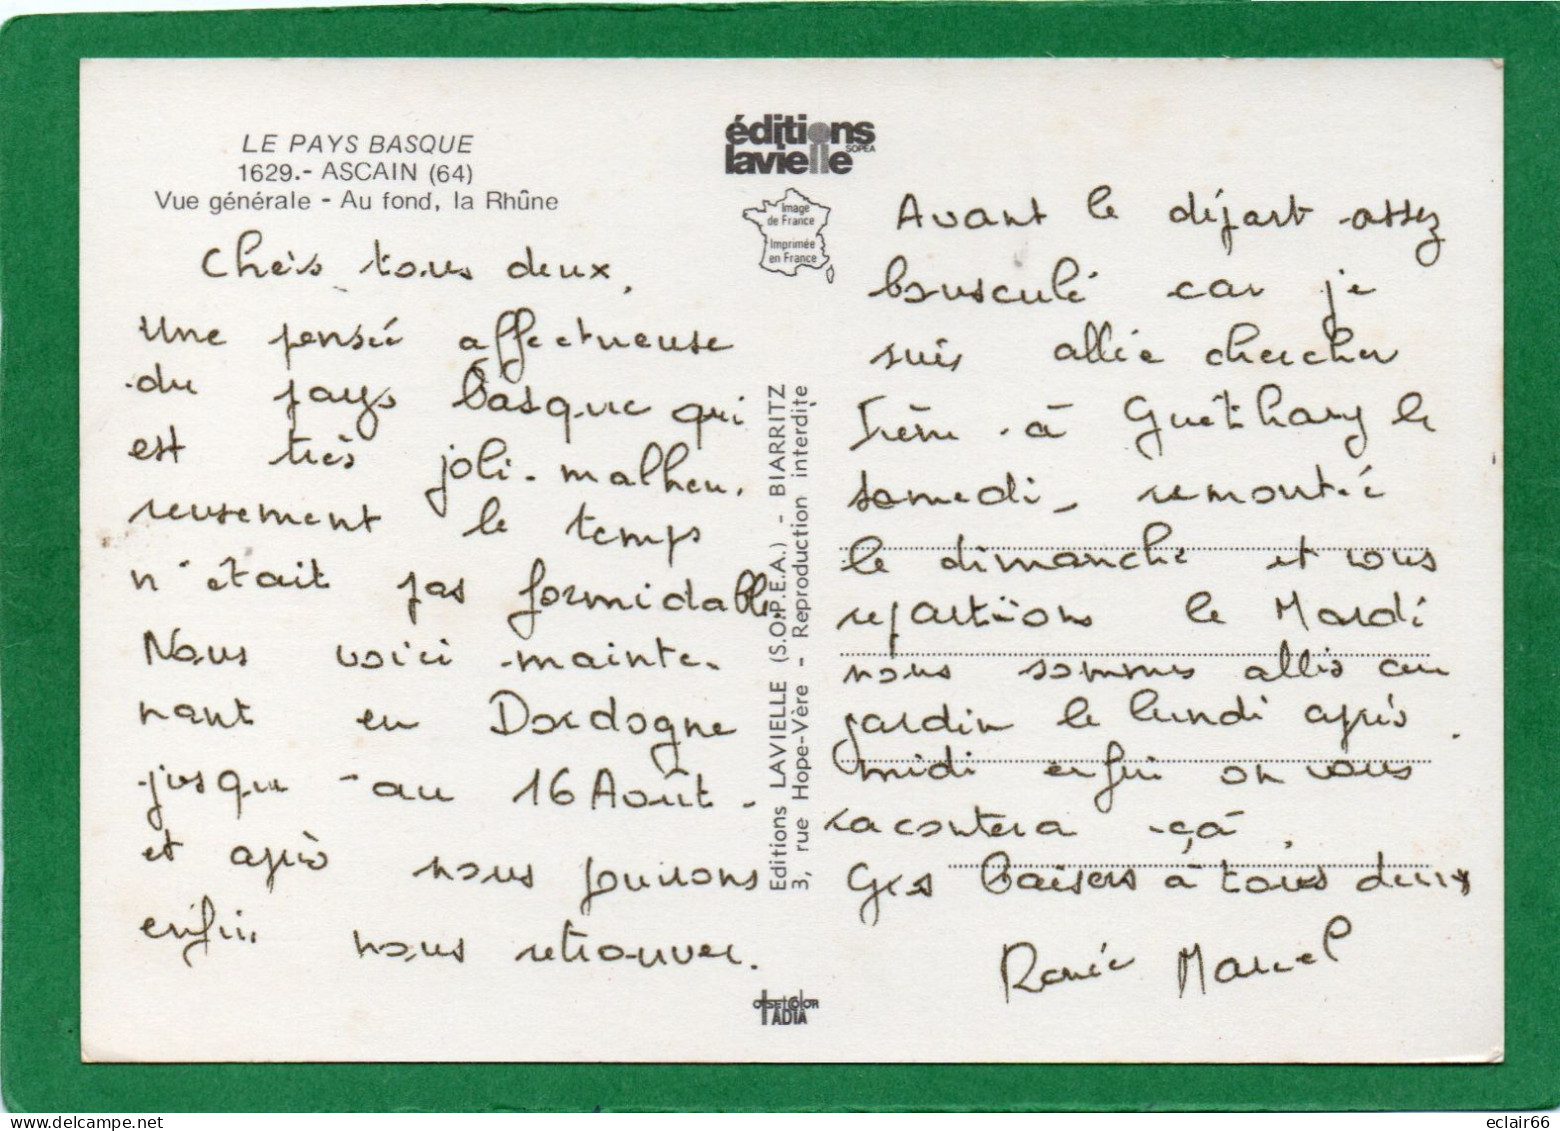 LE PAYS BASQUE
1629.- ASCAIN (64)
Vue générale - Au fond, la Rhûne
Chers tous deux,
Une pensée affectueuse
du pays basque qui
est très joli. malheu.
reusement le temps
n'était pas formidable.
Nous voici mainte.
nant en Dordogne
jusqu'au 16 Août.
et après nous pourrons
enfin nous retrouver.
éditions
lavielle
SOPEA
Image
de France
Imprimée
en France
Editions LAVIELLE (S.O.P.E.A.) - BIARRITZ
3, rue Hope-Vère - Reproduction interdite
OFFSET COLOR
IADIA
Avant le départ assez
bousculé car je
suis allée chercher
Irène à Guéthary le
samedi, remontée
le dimanche et nous
repartions le Mardi
nous sommes allés au
jardin le lundi après
midi enfin on vous
racontera çà.
Ges baisers à tous deux
Renée Marcel
eclair66